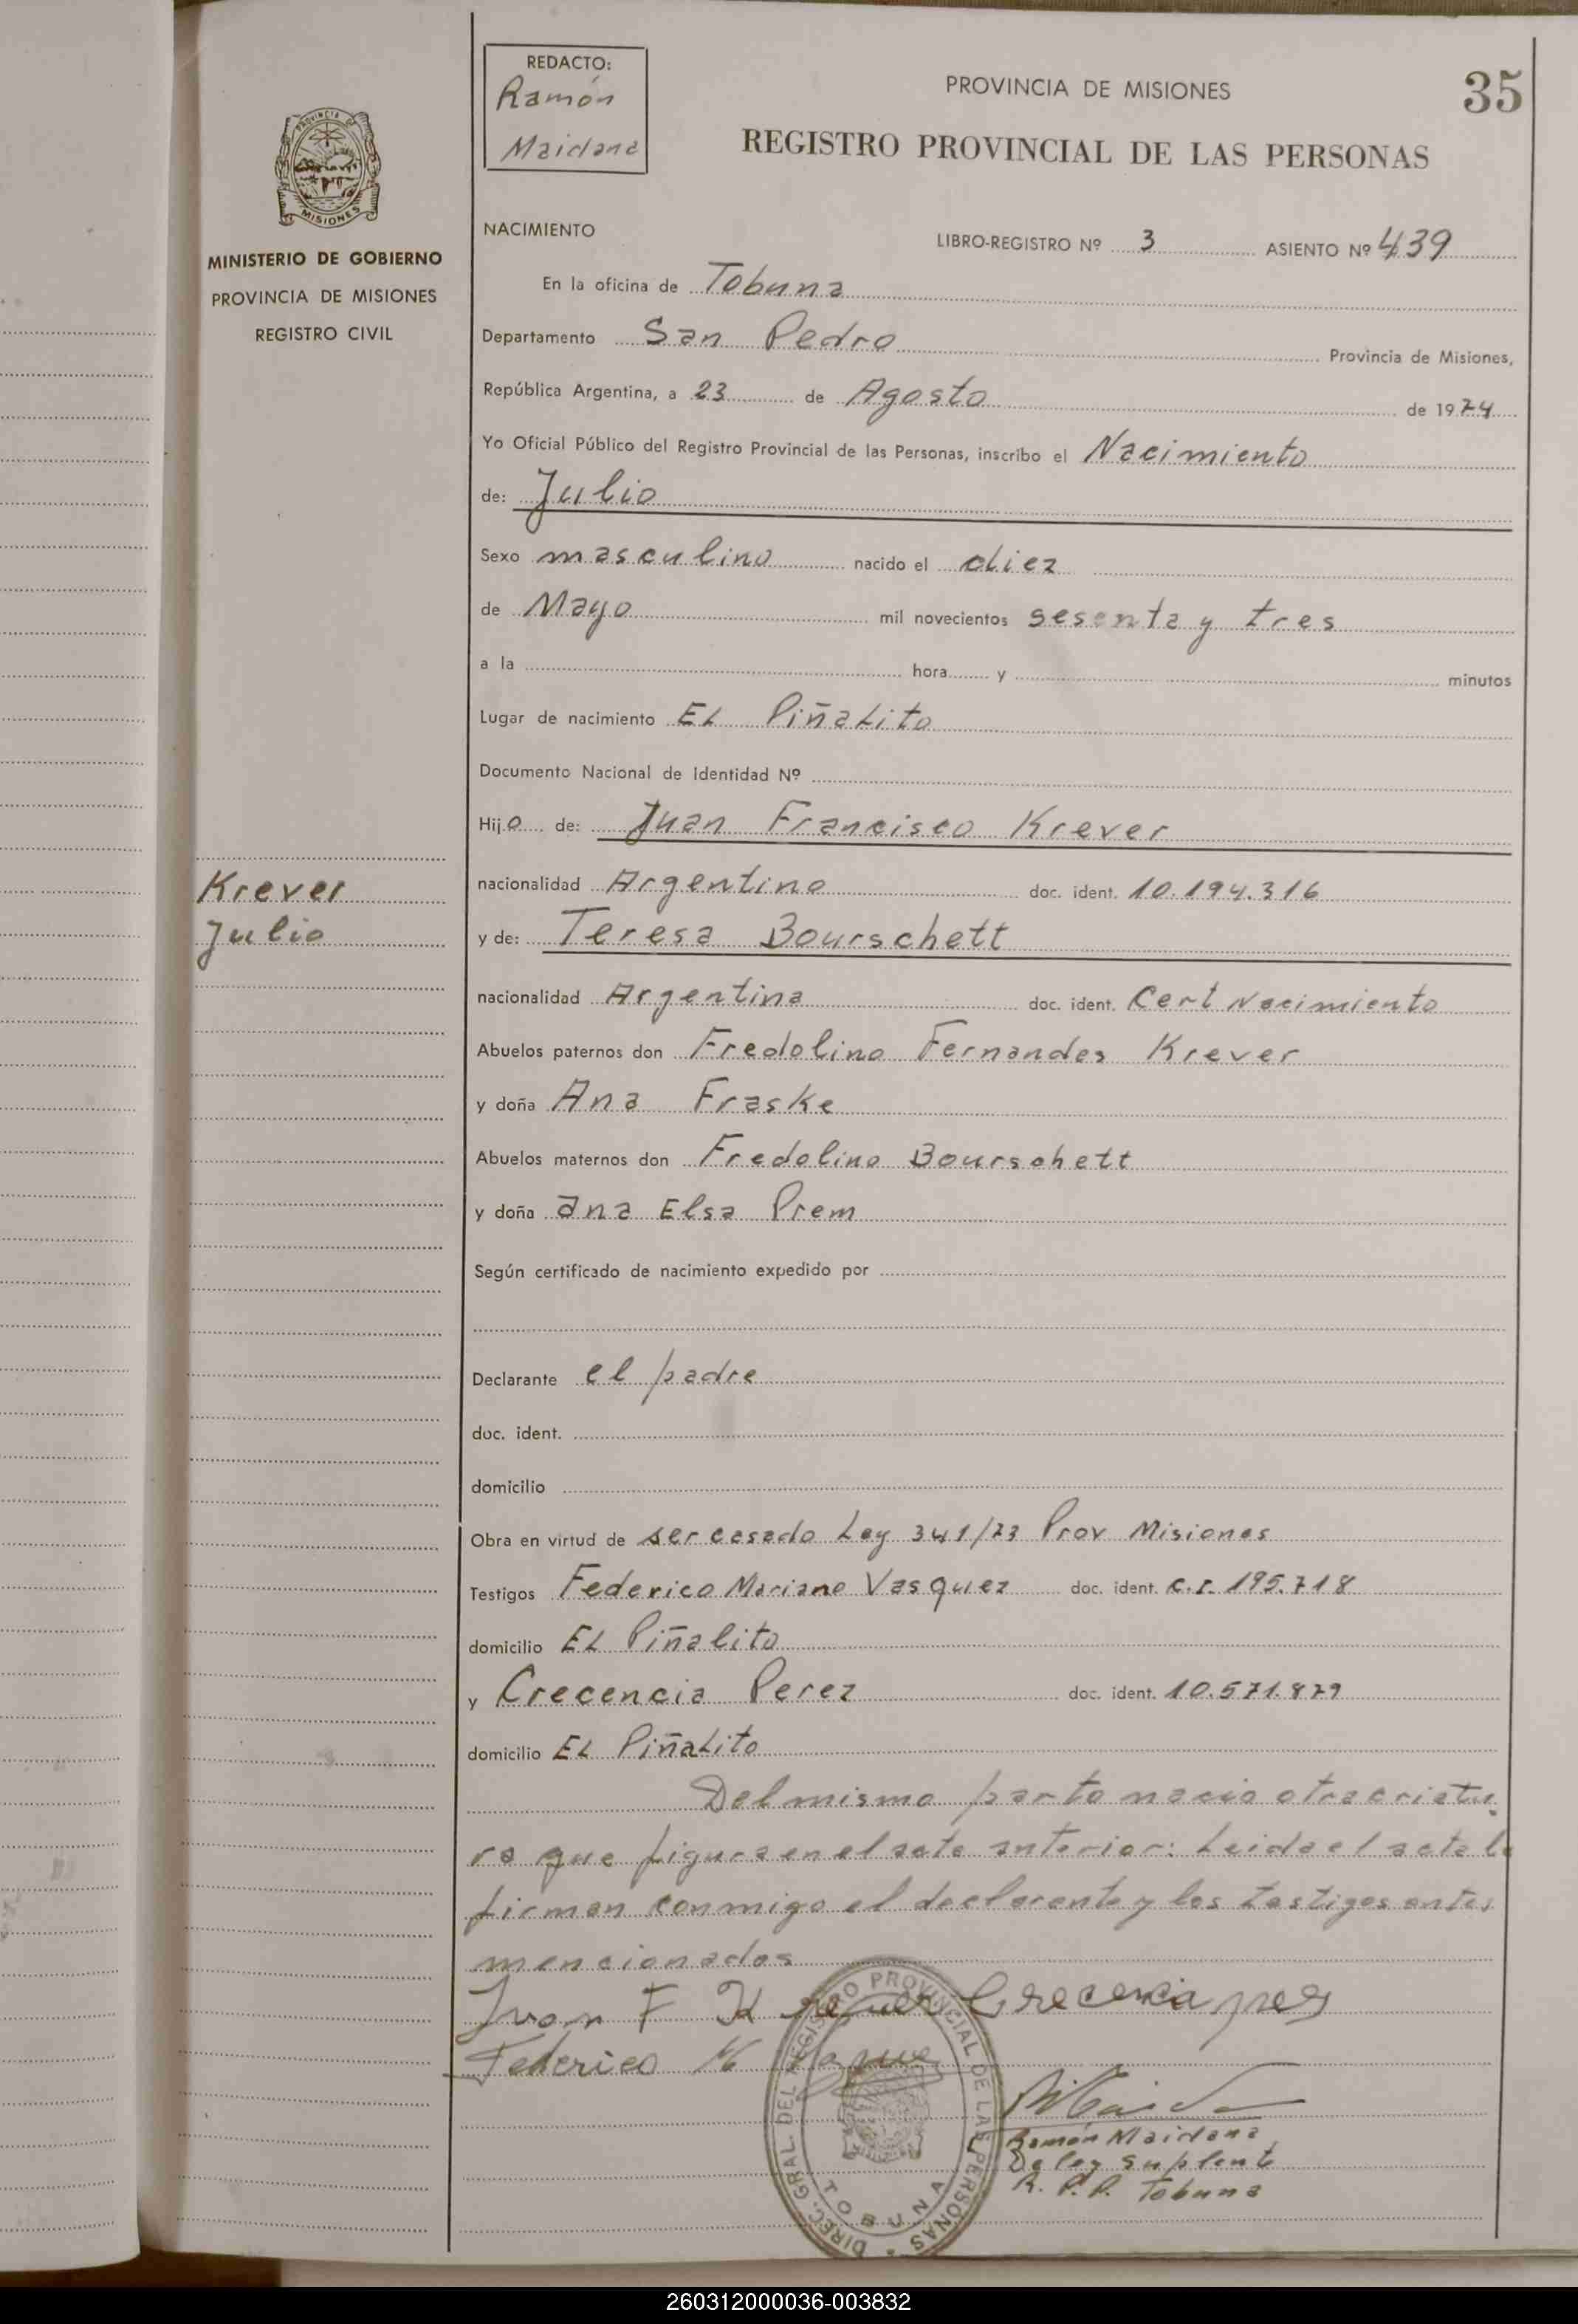 REDACTO:
Ramón
Maidana
PROVINCIA DE MISIONES
35
REGISTRO PROVINCIAL DE LAS PERSONAS
PROVINCIA DE
MISIONES
MINISTERIO DE GOBIERNO
PROVINCIA DE MISIONES
REGISTRO CIVIL
NACIMIENTO
LIBRO-REGISTRO Nº 3 ASIENTO Nº 439
En la oficina de Tobuna
Departamento San Pedro Provincia de Misiones,
República Argentina, a 23 de Agosto de 1974
Yo Oficial Público del Registro Provincial de las Personas, inscribo el Nacimiento
de: Julio
Sexo masculino nacido el diez
de Mayo mil novecientos sesenta y tres
a la hora y minutos
Lugar de nacimiento EL Piñalito
Documento Nacional de Identidad Nº
Hijo de: Juan Francisco Krever
Krever
Julio
nacionalidad Argentino doc. ident. 10.194.316
y de: Teresa Bourschett
nacionalidad Argentina doc. ident. Cert Nacimiento
Abuelos paternos don Fredolino Fernandes Krever
y doña Ana Fraske
Abuelos maternos don Fredolino Bourschett
y doña Ana Elsa Prem
Según certificado de nacimiento expedido por
Declarante el padre
doc. ident.
domicilio
Obra en virtud de ser casado Ley 341/73 Prov Misiones
Testigos Federico Mariano Vasquez doc. ident. C.I. 195.718
domicilio EL Piñalito
y Crecencia Perez doc. ident. 10.571.879
domicilio EL Piñalito
Del mismo parto nacio otra criatu
ra que figura en el acta anterior: Leida el acta la
firman conmigo el declarante y los testigos antes
mencionados
Juan F Krever Crecencia
Federico M
Ramón Maidana
Deleg suplent
R. P. P. Tobuna
DIREC. GRAL. DEL REGISTRO PROVINCIAL DE LAS PERSONAS
TOBUNA
260312000036-003832